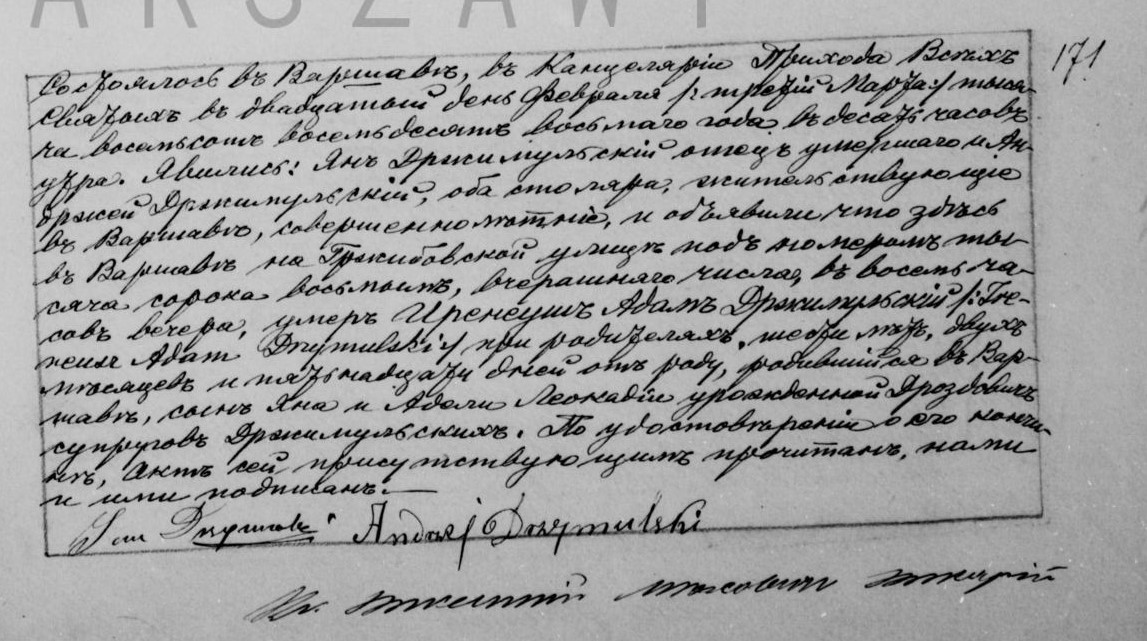 ARSZAWY
171
Состоялось въ Варшавѣ, въ Канцеляріи Прихода Всѣхъ
Святыхъ въ двадцатый день Февраля /:третій Марта:/ тыся-
ча восемьсотъ восемьдесятъ восьмаго года, въ десять часовъ
утра. Явились: Янъ Држимульскій отецъ умершаго и Ан-
држей Држимульскій, оба столяра, жительствующіе
въ Варшавѣ, совершеннолѣтніе, и объявили что здѣсь
въ Варшавѣ на Гржибовской улицѣ подъ номеромъ ты-
сяча сорокъ восьмымъ, вчерашняго числа, въ восемь ча-
совъ вечера, умеръ Иренеушъ Адамъ Држимульскій /:Ire-
neusz Adam Drzymulski:/ при родителяхъ, шести лѣтъ, двухъ
мѣсяцевъ и пятьнадцати дней отъ роду, родившійся въ Вар-
шавѣ, сынъ Яна и Адели Леокадіи урожденной Дроздовичъ
супруговъ Држимульскихъ. По удостовѣреніи о его кончи-
нѣ, актъ сей присутствующимъ прочитанъ, нами
и ими подписанъ.—
Jan Drzymulski Andrzej Drzymulski
Кс.